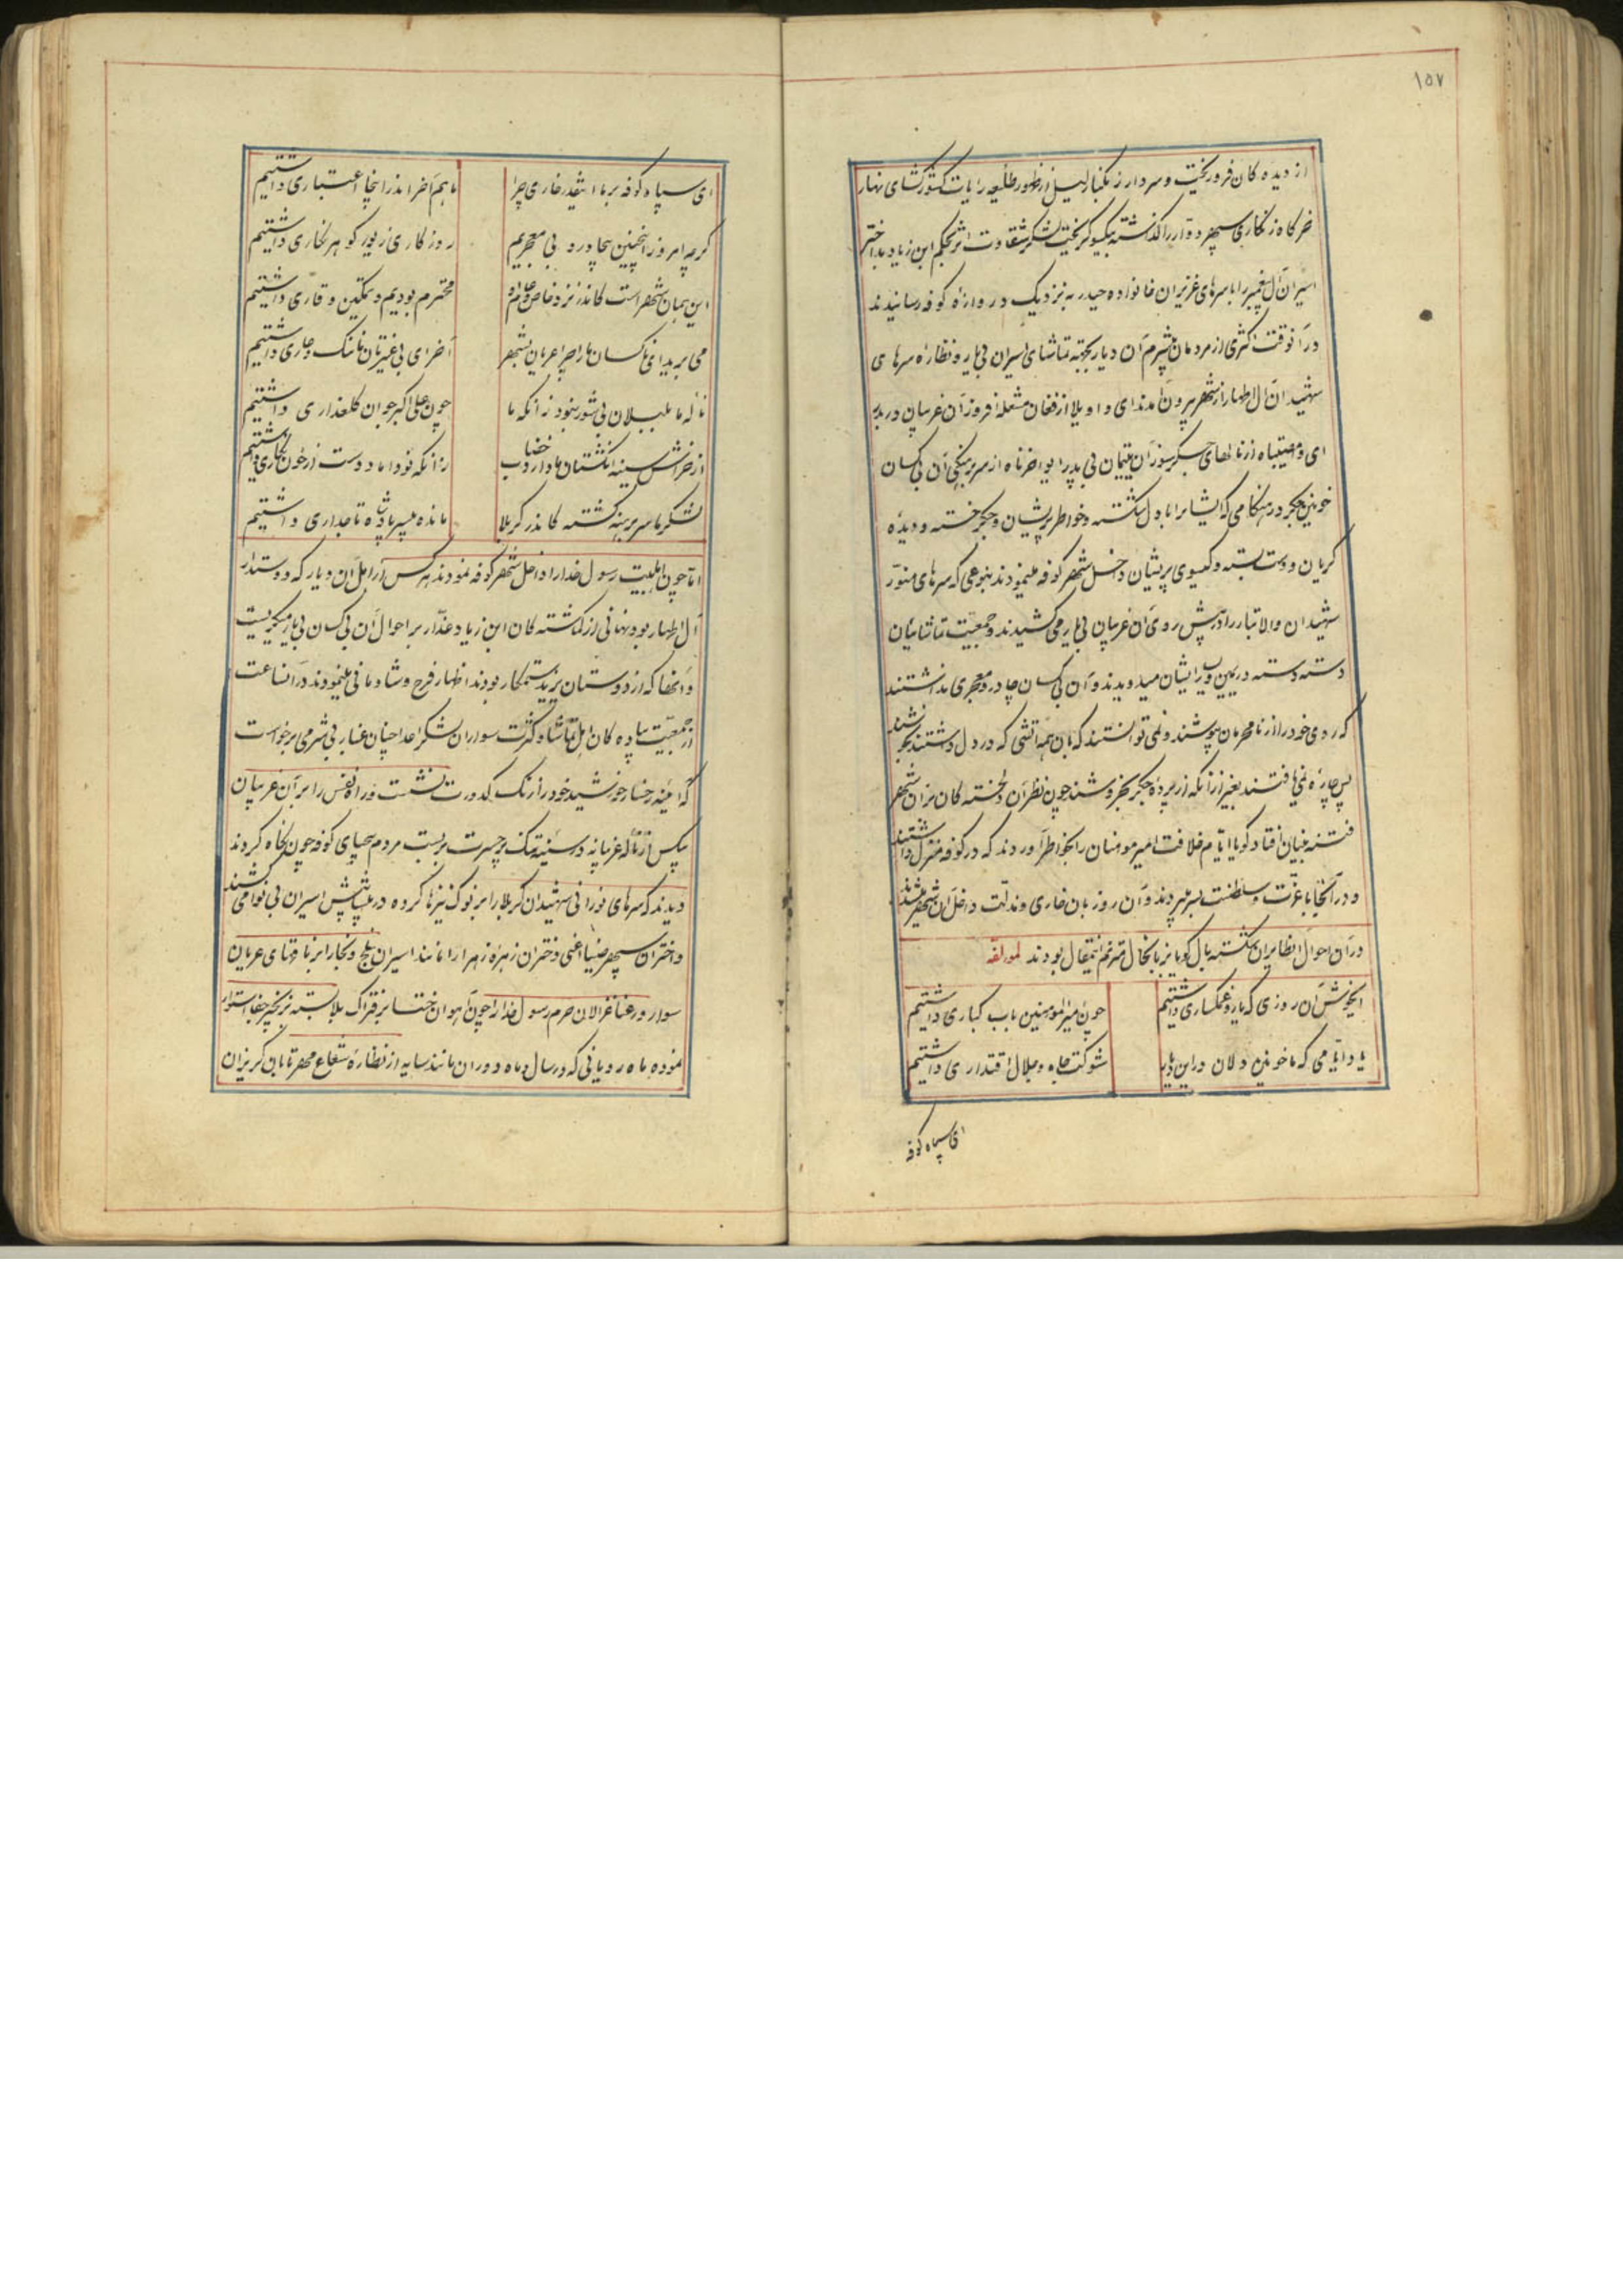 ۱۵۷
از دیده کان فرو ریخت و سردار زنکبار لیل از ظهور طلیعه رایات کشور کشای نهار
خرکاه زنکاری سپهر دوار را کذاشته یکسو کریخت لشکر شقاوت اثر بحکم ابن زیاد بد اختر
اسیران آل پیغمبر را با سرهای عزیزان خانواده حیدر به نزدیک دروازهٔ کوفه رسانیدند
در آنوقت اکثری از مردمان بیشرم آن دیار بجهته تماشای اسیران بی یار و نظاره سرهای
شهیدان آل اطهار از شهر بیرون آمدند ای واویلا از فغان مشعله افروز آن غریبان دربدر
ای وامصیبتاه از نالهای جکرسوز آن یتیمان بی پدر ایواخرناه از سر برهنکی آن بی کسان
خونین جکر در هنکامی که ایشانرا با دل شکسته و خواطر پریشان و جکر خسته و دیدهٔ
کریان و دست بسته و کیسوی پریشان داخل شهر کوفه مینمودند بنوعی که سرهای منور
شهیدان والاتبار را در پیش روی آن غریبان بی یار می کشیدند و جمعیت تماشائیان
دسته دسته در یمین و یسار ایشان میدویدند و آن بی کسان چادر و معجری نداشتند
که روی خود را از نامحرمان بپوشند و نمی توانستند که با آن همه آتشی که در دل داشتند بخروشند
پس چاره نمی یافتند بغیر از آنکه از پردهٔ جکر بخروشند چون نظر آن دلخسته کان بر آن شهر
فتنه بنیان افتاد کویا ایام خلافت امیر مومنان را بخواطر آوردند که در کوفه منزل داشتند
و در آنجا با عزت و سلطنت بسر میبردند و آن روز با آن خاری و ذلت داخل آن شهر میشدند
در آن احوال آنطایران شکسته بال کویا بزبانحال مترنم اینمقال بودند لمولفه
ایخوش آن روزی که یار و غمکساری داشتیم
چون امیرالمومنین باب کباری داشتیم
یاد ایامی که ما خونین دلان در این دیار
شوکت جاه و جلال اقتداری داشتیم
ای سپاه کوفه
ای سپاه کوفه بر ما اینقدر خاری چرا
ما هم آخر اندر اینجا اعتباری داشتیم
کرچه امروز اینچنین بیچادر و بی معجریم
روزکاری زیور کوهر نکاری داشتیم
این همان شهر است کاندر نزد خاص و عام او
محترم بودیم و تمکین و قاری داشتیم
می برید ای ناکسان ما را چرا عریان بشهر
آخر ای بی غیرتان ما ننک و عاری داشتیم
ناله ما بلبلان بی شور نبود زانکه ما
چون علی اکبر جوان کلعذاری داشتیم
از خراش سینه انکشتان ما دارد خضاب
زانکه نوداماد دست از خون نکاری داشتیم
لشکر ما سر برهنه کشته کاندر کربلا
مانده بیسر پادشاه تاجداری داشتیم
اما چون اهلبیت رسول خدا را داخل شهر کوفه نمودند هر کس از اهل آن دیار که دوستدار
آل اطهار بود نهانی از کماشته کان ابن زیاد غدار بر احوال آن بی کسان بی یار میکریست
و آنها که از دوستان یزید ستمکار بودند اظهار فرح و شادمانی مینمودند در آنساعت
از جمعیت پیاده کان اهل تماشا و کثرت سواران لشکر اعدا چنان غبار بی شرمی برخواست
که آئینه رخسار خورشید خود را زنک کدورت نشست و راه نفس را بر آن غریبان
بیکس از ناله غریبانه در سینه تنک پرحسرت بربست مردم بیحیای کوفه چون نکاه کردند
دیدند که سرهای نورانی شهیدان کربلا را بر نوک نیزها کرده در پیشاپیش اسیران بی نوا می کشند
و اختران سپهر ضیا اعنی دختران زهره زهرا را مانند اسیران بلج و بخارا بر ناقهای عریان
سوار و رعنا غزالان حرم رسول خدا را چون آهوان ختا بر فتراک بلا بسته بزنجیر جفا استوار
نموده ماه رویانی که در سال و ماه و دوران مانند سایه از نظارهٔ شعاع مهر تابان کریزان